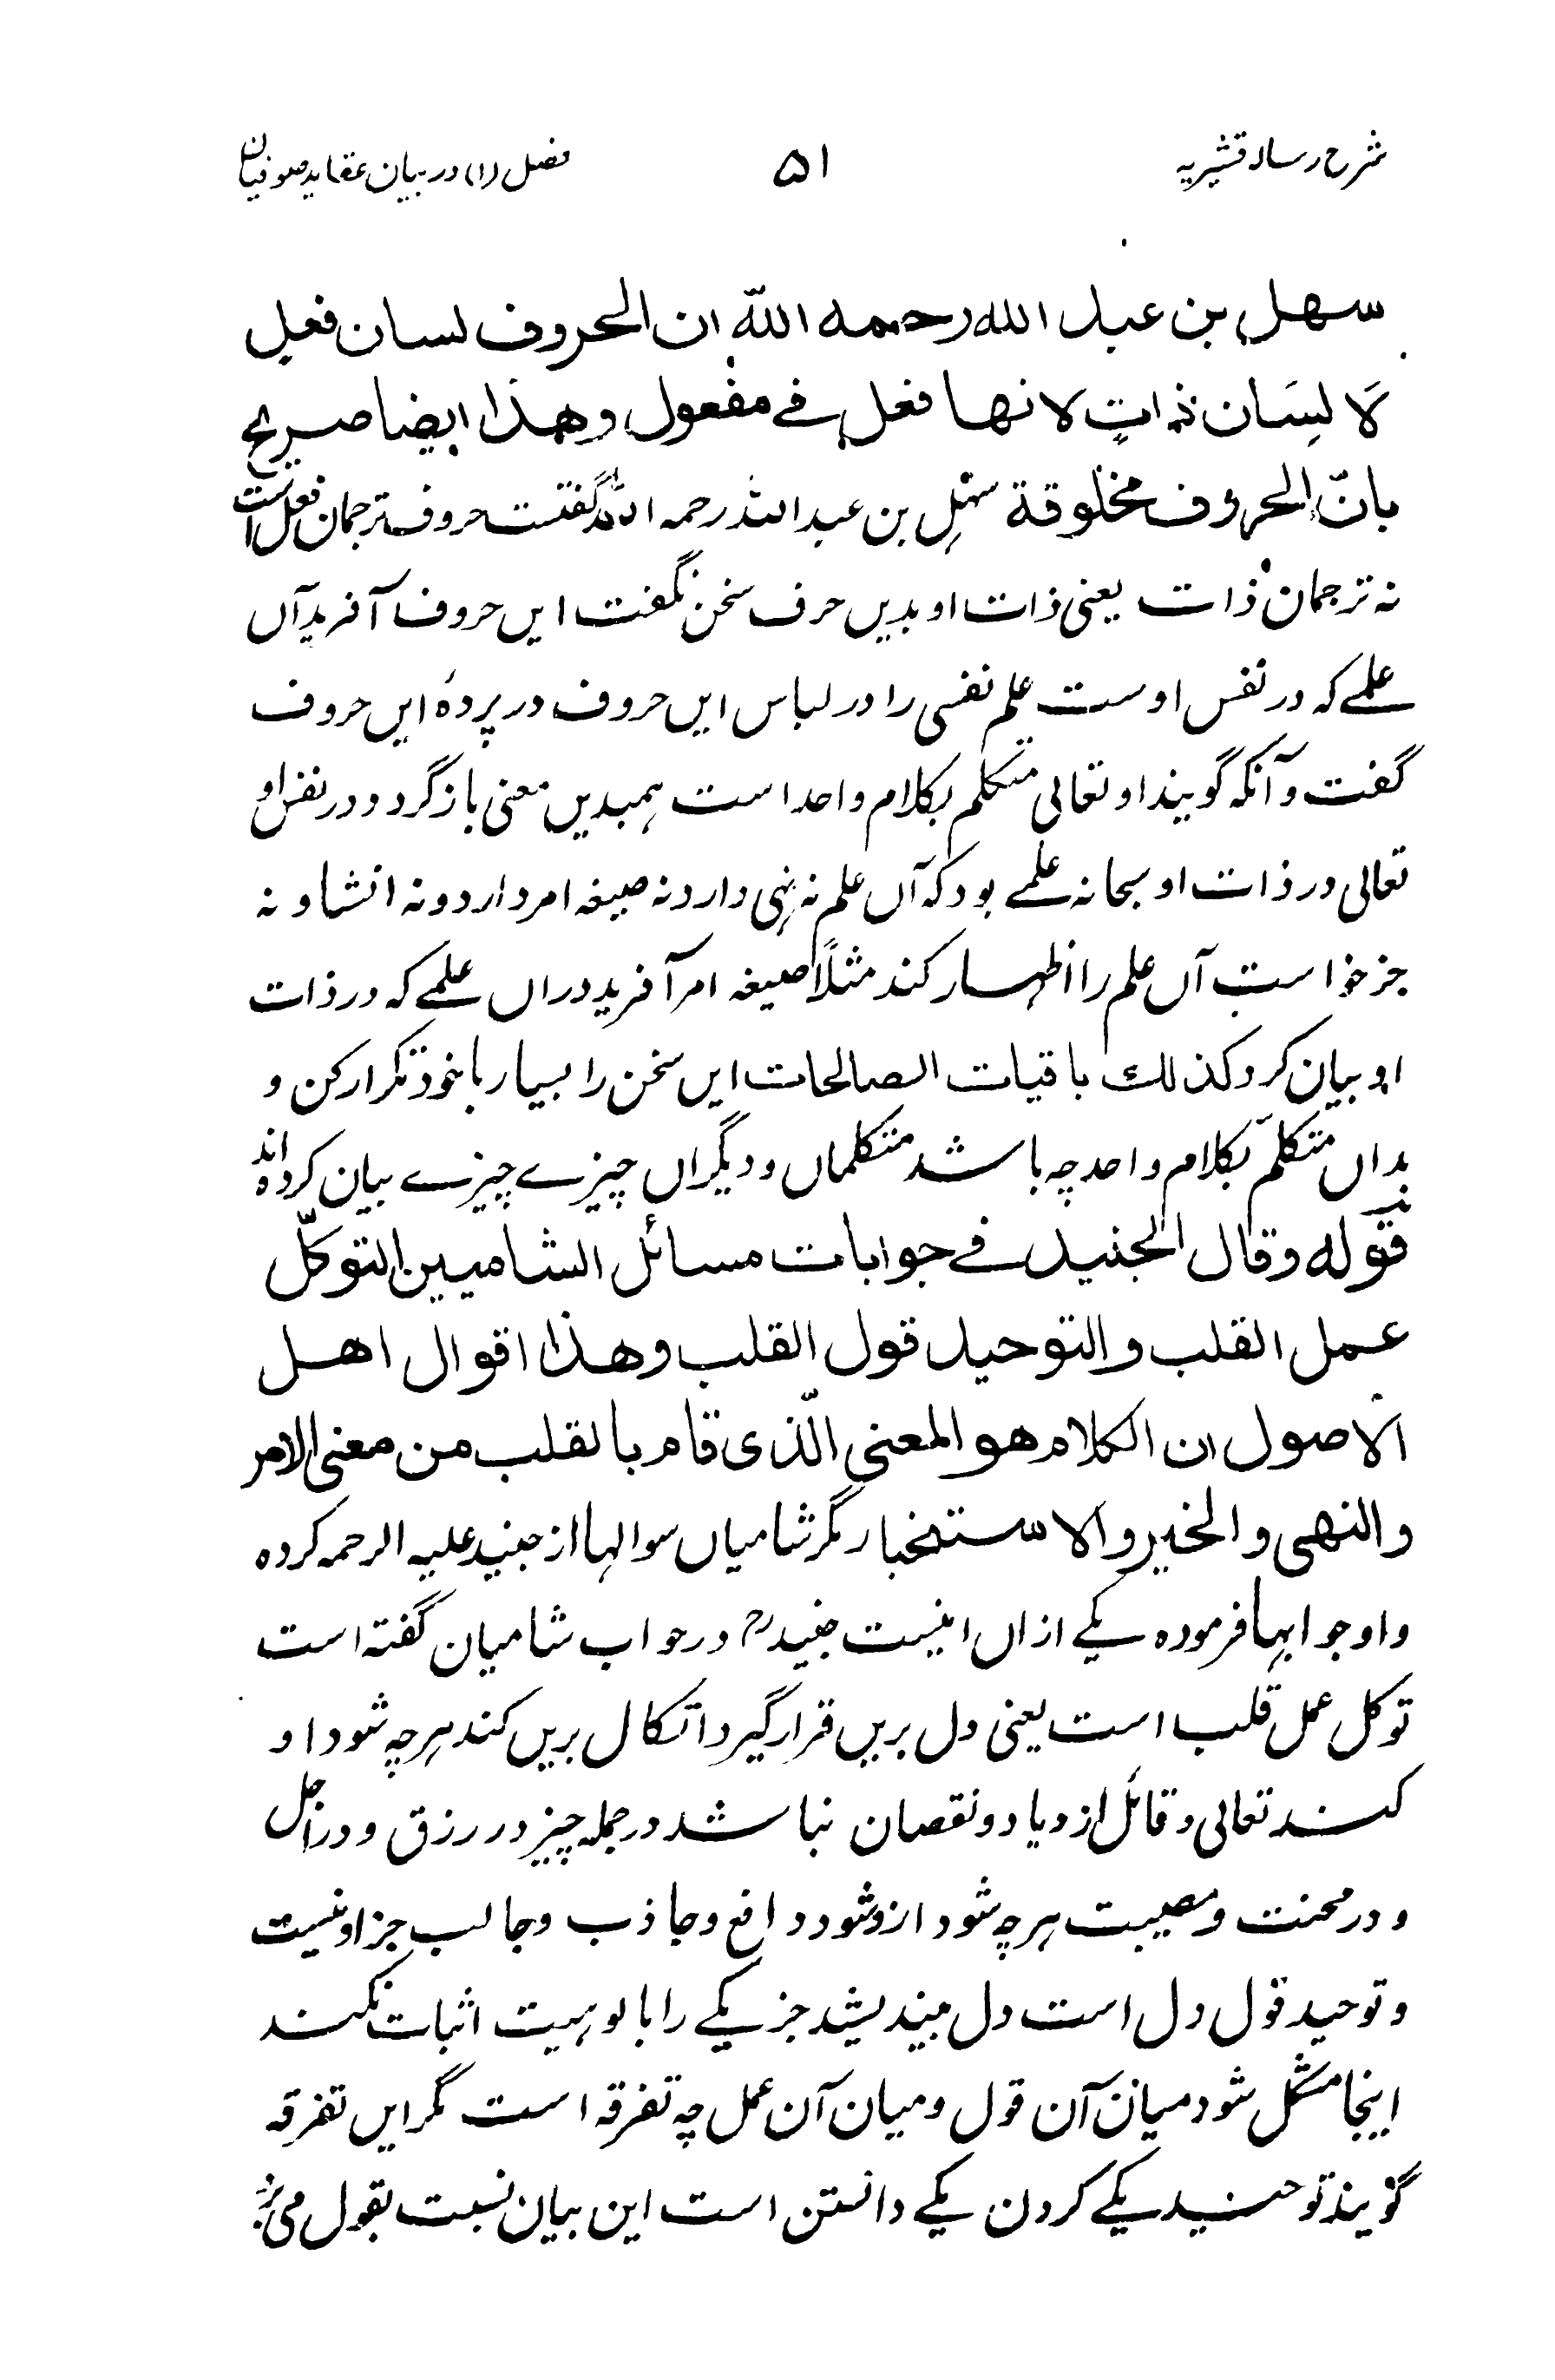 شرح رساله قشیریه ۵۱ فصل (۱) در بیان عقاید صوفیان
سهل بن عبد الله رحمه الله ان الحروف لسان فعل
لَا لِسَان ذاتٍ لانها فعل فے مفعول وهذا ایضا صریح
بانّ الحروف مخلوقة سہل بن عبد اللہ رحمہ اللہ گفتست حروف ترجمان فعل است
نہ ترجمان ذات یعنی ذات او بدیں حرف سخن نگفت ایں حروف آفرید آں
علمے کہ در نفس اوست علم نفسی را در لباس ایں حروف در پردۂ ایں حروف
گفت و آنکہ گویند او تعالی متکلم بکلام واحد است ہمبدیں معنی باز گردد و در نفس او
تعالی در ذات او سبحانہ علمے بود کہ آں علم نہ نہی دارد نہ صیغہ امر دارد و نہ انشا و نہ
جز خواست آں علم را اظہار کند مثلاً صیغہ امر آفرید دراں علمے کہ در ذات
او بیان کرد کذلك باقیات الصالحات ایں سخن را بسیار با خود تکرار کن و
بداں متکلم بکلام واحد چہ باشد متکلماں و دیگراں چیزے چیزے بیان کردہ اند
قوله وقال الجنید فے جوابات مسائل الشامیین التوکّل
عمل القلب والتوحید قول القلب وهذا اقوال اهل
الاصول ان الکلام هو المعنی الّذی قام بالقلب من معنی الامر
والنهی والخبر والاستخبار مگر شامیاں سوالہا از جنید علیہ الرحمہ کردہ
و او جوابہا فرمودہ یکے ازاں اینست جنیدؒ در جواب شامیان گفتہ است
توکل عمل قلب است یعنی دل بریں قرار گیرد اتکال بریں کند ہرچہ شود او
کند تعالی و قائل ازدیاد و نقصان نباشد در جملہ چیز در رزق و در اجل
و در محنت و مصیبت ہرچہ شود ازو شود دافع و جاذب و جالب جز او نیست
و توحید قول دل است دل بیندیشد جز یکے را بالوہیت اثبات نکند
اینجا مشکل شود میان آن قول و میان آن عمل چہ تفرقہ است مگر ایں تفرقہ
گویند توحید یکے کردن یکے دانستن است این بیان نسبت بقول می